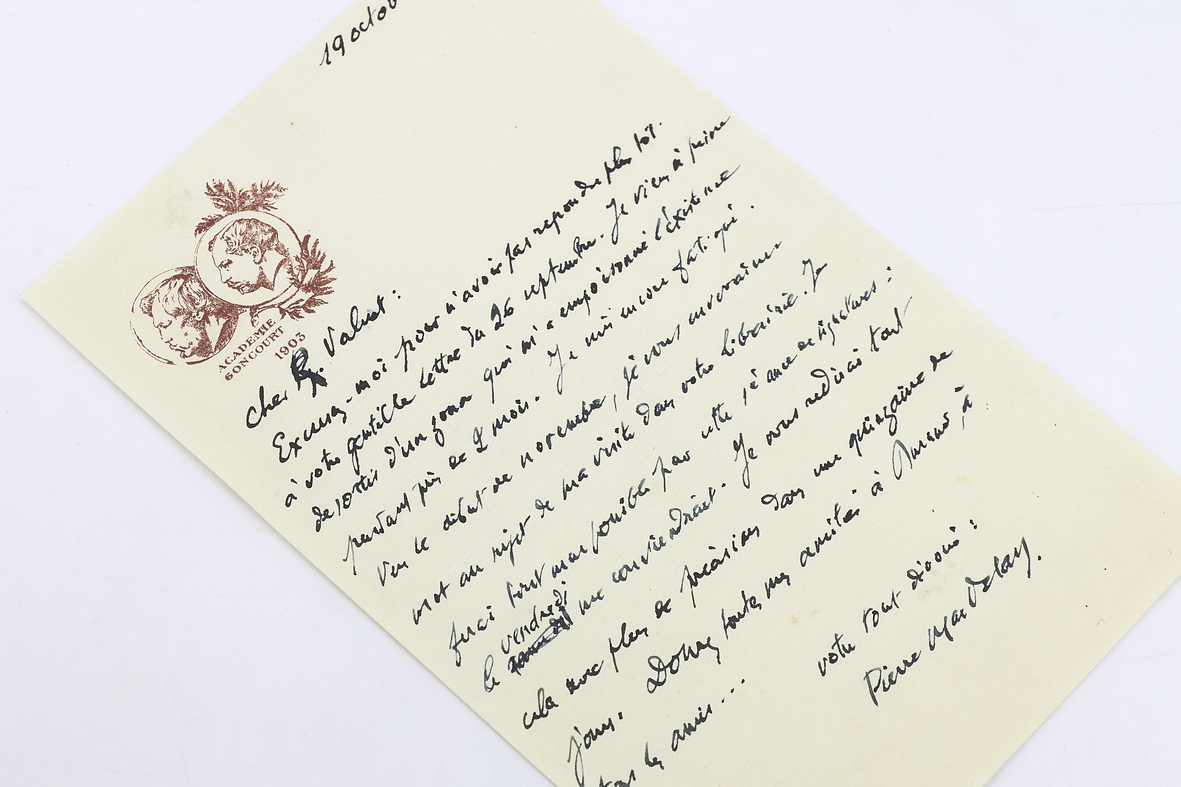 19 octob
ACADEMIE
GONCOURT
1903
Cher R. Valnet :
Excusez-moi pour n'avoir pas répondu plus tôt.
à votre gentille lettre du 26 septembre. Je viens à peine
de sortir d'un zona qui m'a empoisonné l'existence
pendant près de 2 mois. Je suis encore fatigué.
Vers le début de novembre, je vous enverrai un
mot au sujet de ma visite dans votre librairie. Je
ferai tout mon possible pour cette séance de signatures :
le vendredi me conviendrait. Je vous redirai tout
cela avec plus de précision dans une quinzaine de
jours. Donnez toutes mes amitiés à à
tous les amis...
votre tout dévoué :
Pierre Mac Orlan.